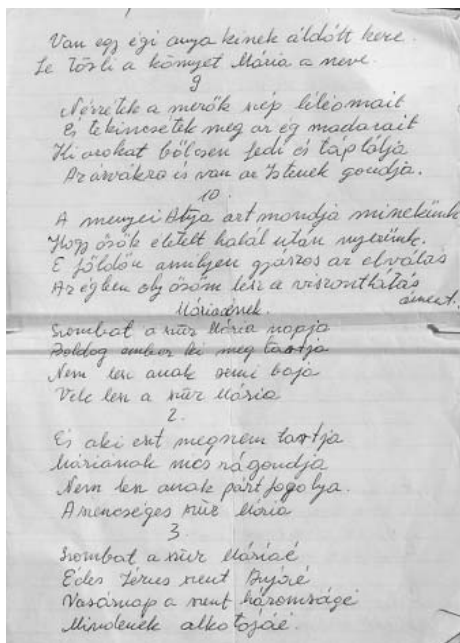 Van egy égi anya kinek áldótt keze.
Le törli a könnyet Mária a neve.
9
Nézzétek a mezők szép liliomait
És tekincsétek meg az ég madarait
Ki azokat bölcsen fedi és táplálja
Az árvákra is van az Istenek gondja.
10.
A mennyei Atya azt mondja minekünk
Hogy örök életett halál után nyerünk.
E földön amilyen gyászos az elválás
Az égben oly öröm lesz a viszonthátás
áment.
Máriaének.
Szombat a szűz Mária napja
Boldog ember ki meg tartja
Nem lesz anak semi baja
Vele lesz a szűz Mária
2.
És aki ezt megnem tartja
Máriának nics rágondja
Nem lesz anak pártfogolja.
A mencséges szűz Mória
3.
Szombat a szűz Máriáé
Édes Jézus szent Annáé
Vasárnap a szent háromságé
Mindenek alkotójáé.